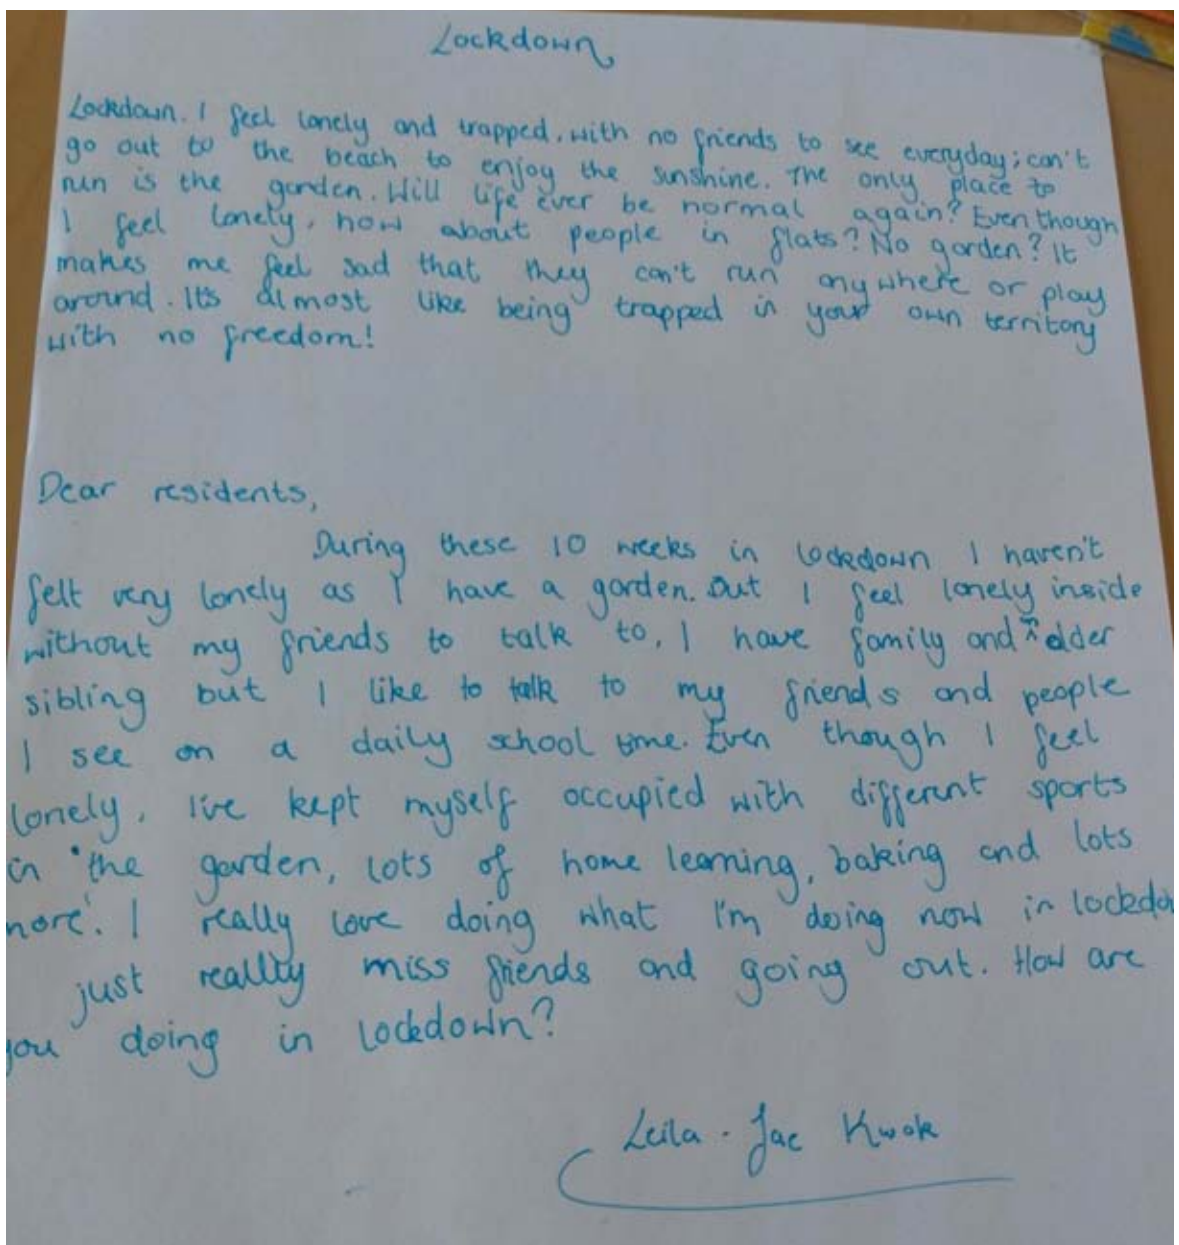 Lockdown
Lockdown. I feel lonely and trapped, with no friends to see everyday; can't
go out to the beach to enjoy the sunshine. The only place to
run is the garden. Will life ever be normal again? Even though
I feel lonely, how about people in flats? No garden? It
makes me feel sad that they can't run anywhere or play
around. It's almost like being trapped in your own territory
with no freedom!
Dear residents,
During these 10 weeks in lockdown I haven't
felt very lonely as I have a garden. But I feel lonely inside
without my friends to talk to. I have family and elder
sibling but I like to talk to my friends and people
I see on a daily school time. Even though I feel
lonely, I've kept myself occupied with different sports
in the garden, lots of home learning, baking and lots
more. I really love doing what I'm doing now in lockdo
just reallly miss friends and going out. How are
you doing in lockdown?
Leila-Jae Kwok